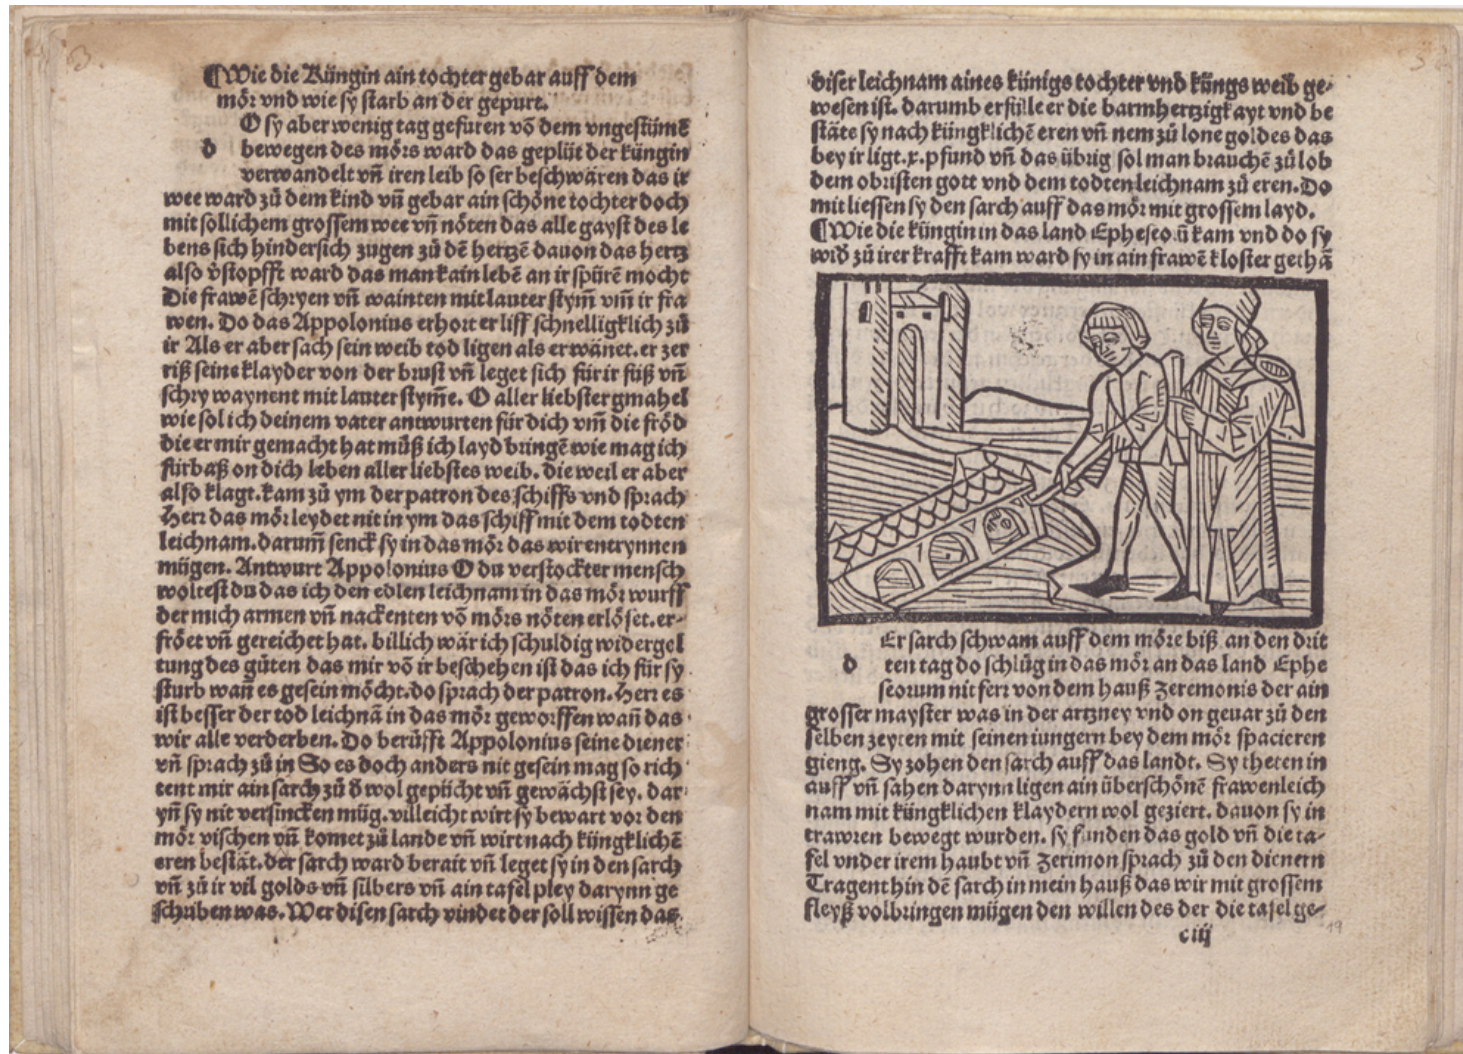 ¶Wie die Küngin ain tochter gebar auff dem
mör vnd wie sy starb an der gepurt.
O sy aber wenig tag gefuren võ dem vngestümẽ
d bewegen des mörs ward das geplüt der küngin
verwandelt vñ iren leib so ser beschwären das ir
wee ward zů dem kind vñ gebar ain schöne tochter doch
mit sollichem grossem wee vñ nöten das alle gayst des le
bens sich hindersich zugen zů dẽ hertzẽ dauon das hertz
also v̄stopfft ward das man kain lebẽ an ir spürẽ mocht
Die frawẽ schryen vñ wainten mit lauter stym̄ vm̄ ir fra
wen. Do das Appolonius erhort er liff schnelligklich zů
ir Als er aber sach sein weib tod ligen als er wänet. er zer
riß seine klayder von der brust vñ leget sich für ir füß vñ
schry waynent mit lauter stym̄e. O aller liebster gmahel
wie sol ich deinem vater antwurten für dich vm̄ die fröd
die er mir gemacht hat můß ich layd bringẽ wie mag ich
fürbaß on dich leben aller liebstes weib. die weil er aber
also klagt. kam zů ym der patron des schiffs vnd sprach
Herr das mör leydet nit in ym das schiff mit dem todten
leichnam. darum̄ senck sy in das mör das wir entrynnen
mügen. Antwurt Appolonius O du verstockter mensch
woltest du das ich den edlen leichnam in das mör wurff
der mich armen vñ nackenten võ mörs nöten erlöset. er-
fröet vñ gereichet hat. billich wär ich schuldig widergel
tung des gůten das mir võ ir beschehen ist das ich für sy
sturb wañ es gesein möcht. do sprach der patron. Herr es
ist besser der tod leichnã in das mör geworffen wañ das
wir alle verderben. Do berüfft Appolonius seine diener
vñ sprach zů in So es doch anders nit gesein mag so rich
tent mir ain sarch zů d̄ wol gepicht vñ gewächst sey. dar
yñ sy nit versincken müg. villeicht wirt sy bewart vor den
mör vischen vñ komet zů lande vñ wirt nach küngklichẽ
eren bestät. der sarch ward berait vñ leget sy in den sarch
vñ zů ir vil golds vñ silbers vñ ain tafel pley darynn ge
schriben was. Wer disen sarch vindet der soll wissen das
diser leichnam aines künigs tochter vnd küngs weib ge-
wesen ist. darumb erfülle er die barmhertzigkayt vnd be
stäte sy nach küngklichẽ eren vñ nem zů lone goldes das
bey ir ligt .x. pfund vñ das übrig sol man brauchẽ zů lob
dem obristen gott vnd dem todten leichnam zů eren. Do
mit liessen sy den sarch auff das mör mit grossem layd.
¶Wie die küngin in das land Epheseoꝝ kam vnd do sy
wid̄ zů irer krafft kam ward sy in ain frawẽ kloster gethã
Er sarch schwam auff dem möre biß an den drit
d ten tag do schlůg in das mör an das land Ephe
seorum nit ferr von dem hauß Zeremonis der ain
grosser mayster was in der artzney vnd on geuar zů den
selben zeyten mit seinen iungern bey dem mör spacieren
gieng. Sy zohen den sarch auff das landt. Sy theten in
auff vñ sahen darynn ligen ain überschönẽ frawenleich
nam mit küngklichen klaydern wol geziert. dauon sy in
trawren bewegt wurden. sy funden das gold vñ die ta-
fel vnder irem haubt vñ Zerimon sprach zů den dienern
Tragent hin dẽ sarch in mein hauß das wir mit grossem
fleyß volbringen mügen den willen des der die tafel ge-
ciij
19